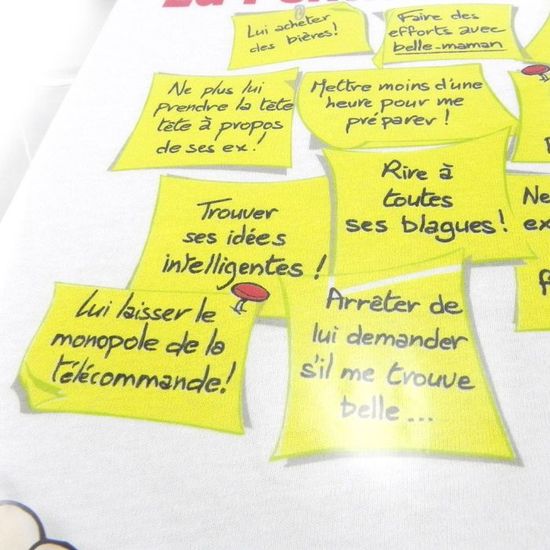 Lui acheter
des bières!
Faire des
efforts avec
belle-maman
Ne plus lui
prendre la tête
tête à propos
de ses ex!
Mettre moins d'une
heure pour me
préparer!
Rire à
toutes
ses blagues!
Trouver
ses idées
intelligentes!
Lui laisser le
monopole de la
télécommande!
Arrêter de
lui demander
s'il me trouve
belle...
Ne
ex